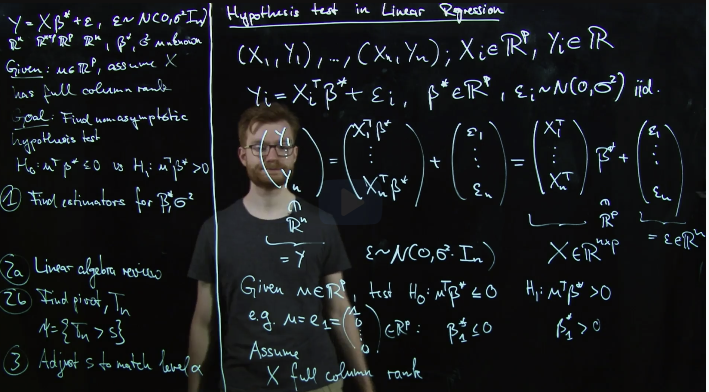 Y = Xβ* + ε, ε ~ N(0, σ² Iₙ)
ℝⁿ ℝⁿˣᵖ ℝᵖ ℝⁿ, β*, σ² unknown
Given: u ∈ ℝᵖ, assume X
has full column rank
Goal: Find nonasymptotic
hypothesis test
H₀: uᵀβ* ≤ 0 vs H₁: uᵀβ* > 0
① Find estimators for β*, σ²
2a Linear algebra review
2b Find pivot, Tₙ
ψ = {Tₙ > s}
③ Adjust s to match level α
Hypothesis test in Linear Regression
(X₁, Y₁), ..., (Xₙ, Yₙ); Xᵢ ∈ ℝᵖ, Yᵢ ∈ ℝ
Yᵢ = Xᵢᵀβ* + εᵢ, β* ∈ ℝᵖ, εᵢ ~ N(0, σ²) iid.
(Y₁ ⋮ Yₙ) = (X₁ᵀβ* ⋮ Xₙᵀβ*) + (ε₁ ⋮ εₙ) = (X₁ᵀ ⋮ Xₙᵀ) β* + (ε₁ ⋮ εₙ)
∈ ℝⁿ ∈ ℝᵖ
= Y ε ~ N(0, σ² · Iₙ) X ∈ ℝⁿˣᵖ = ε ∈ ℝⁿ
Given u ∈ ℝᵖ, test H₀: uᵀβ* ≤ 0 H₁: uᵀβ* > 0
e.g. u = e₁ = (1 0 ⋮ 0) ∈ ℝᵖ: β₁* ≤ 0 β₁* > 0
Assume
X full column rank